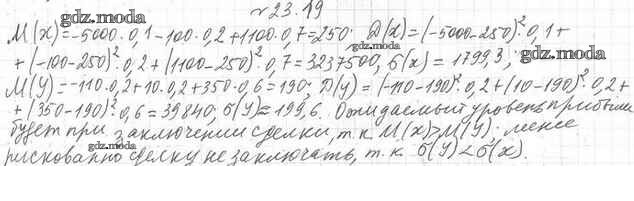 №23.19
gdz.moska
gdz.moska
M(x)=-5000·0,1-100·0,2+1100·0,7=250. D(x)=(-5000-250)²·0,1+
+(-100-250)²·0,2+(1100-250)²·0,7=3237500, б(x)=1799,3;
gdz.moska
gdz.moska
M(y)=-110·0,2+10·0,2+350·0,6=190; D(y)=(-110-190)²·0,2+(10-190)²·0,2+
+(350-190)²·0,6=39840; б(y)≈199,6. Ожидаемый уровень прибыли
gdz.moska
gdz.moska
будет при заключении сделки, т.к. M(x)>M(y). менее
рискованно сделку не заключать, т.к. б(y)<б(x).
gdz.moska